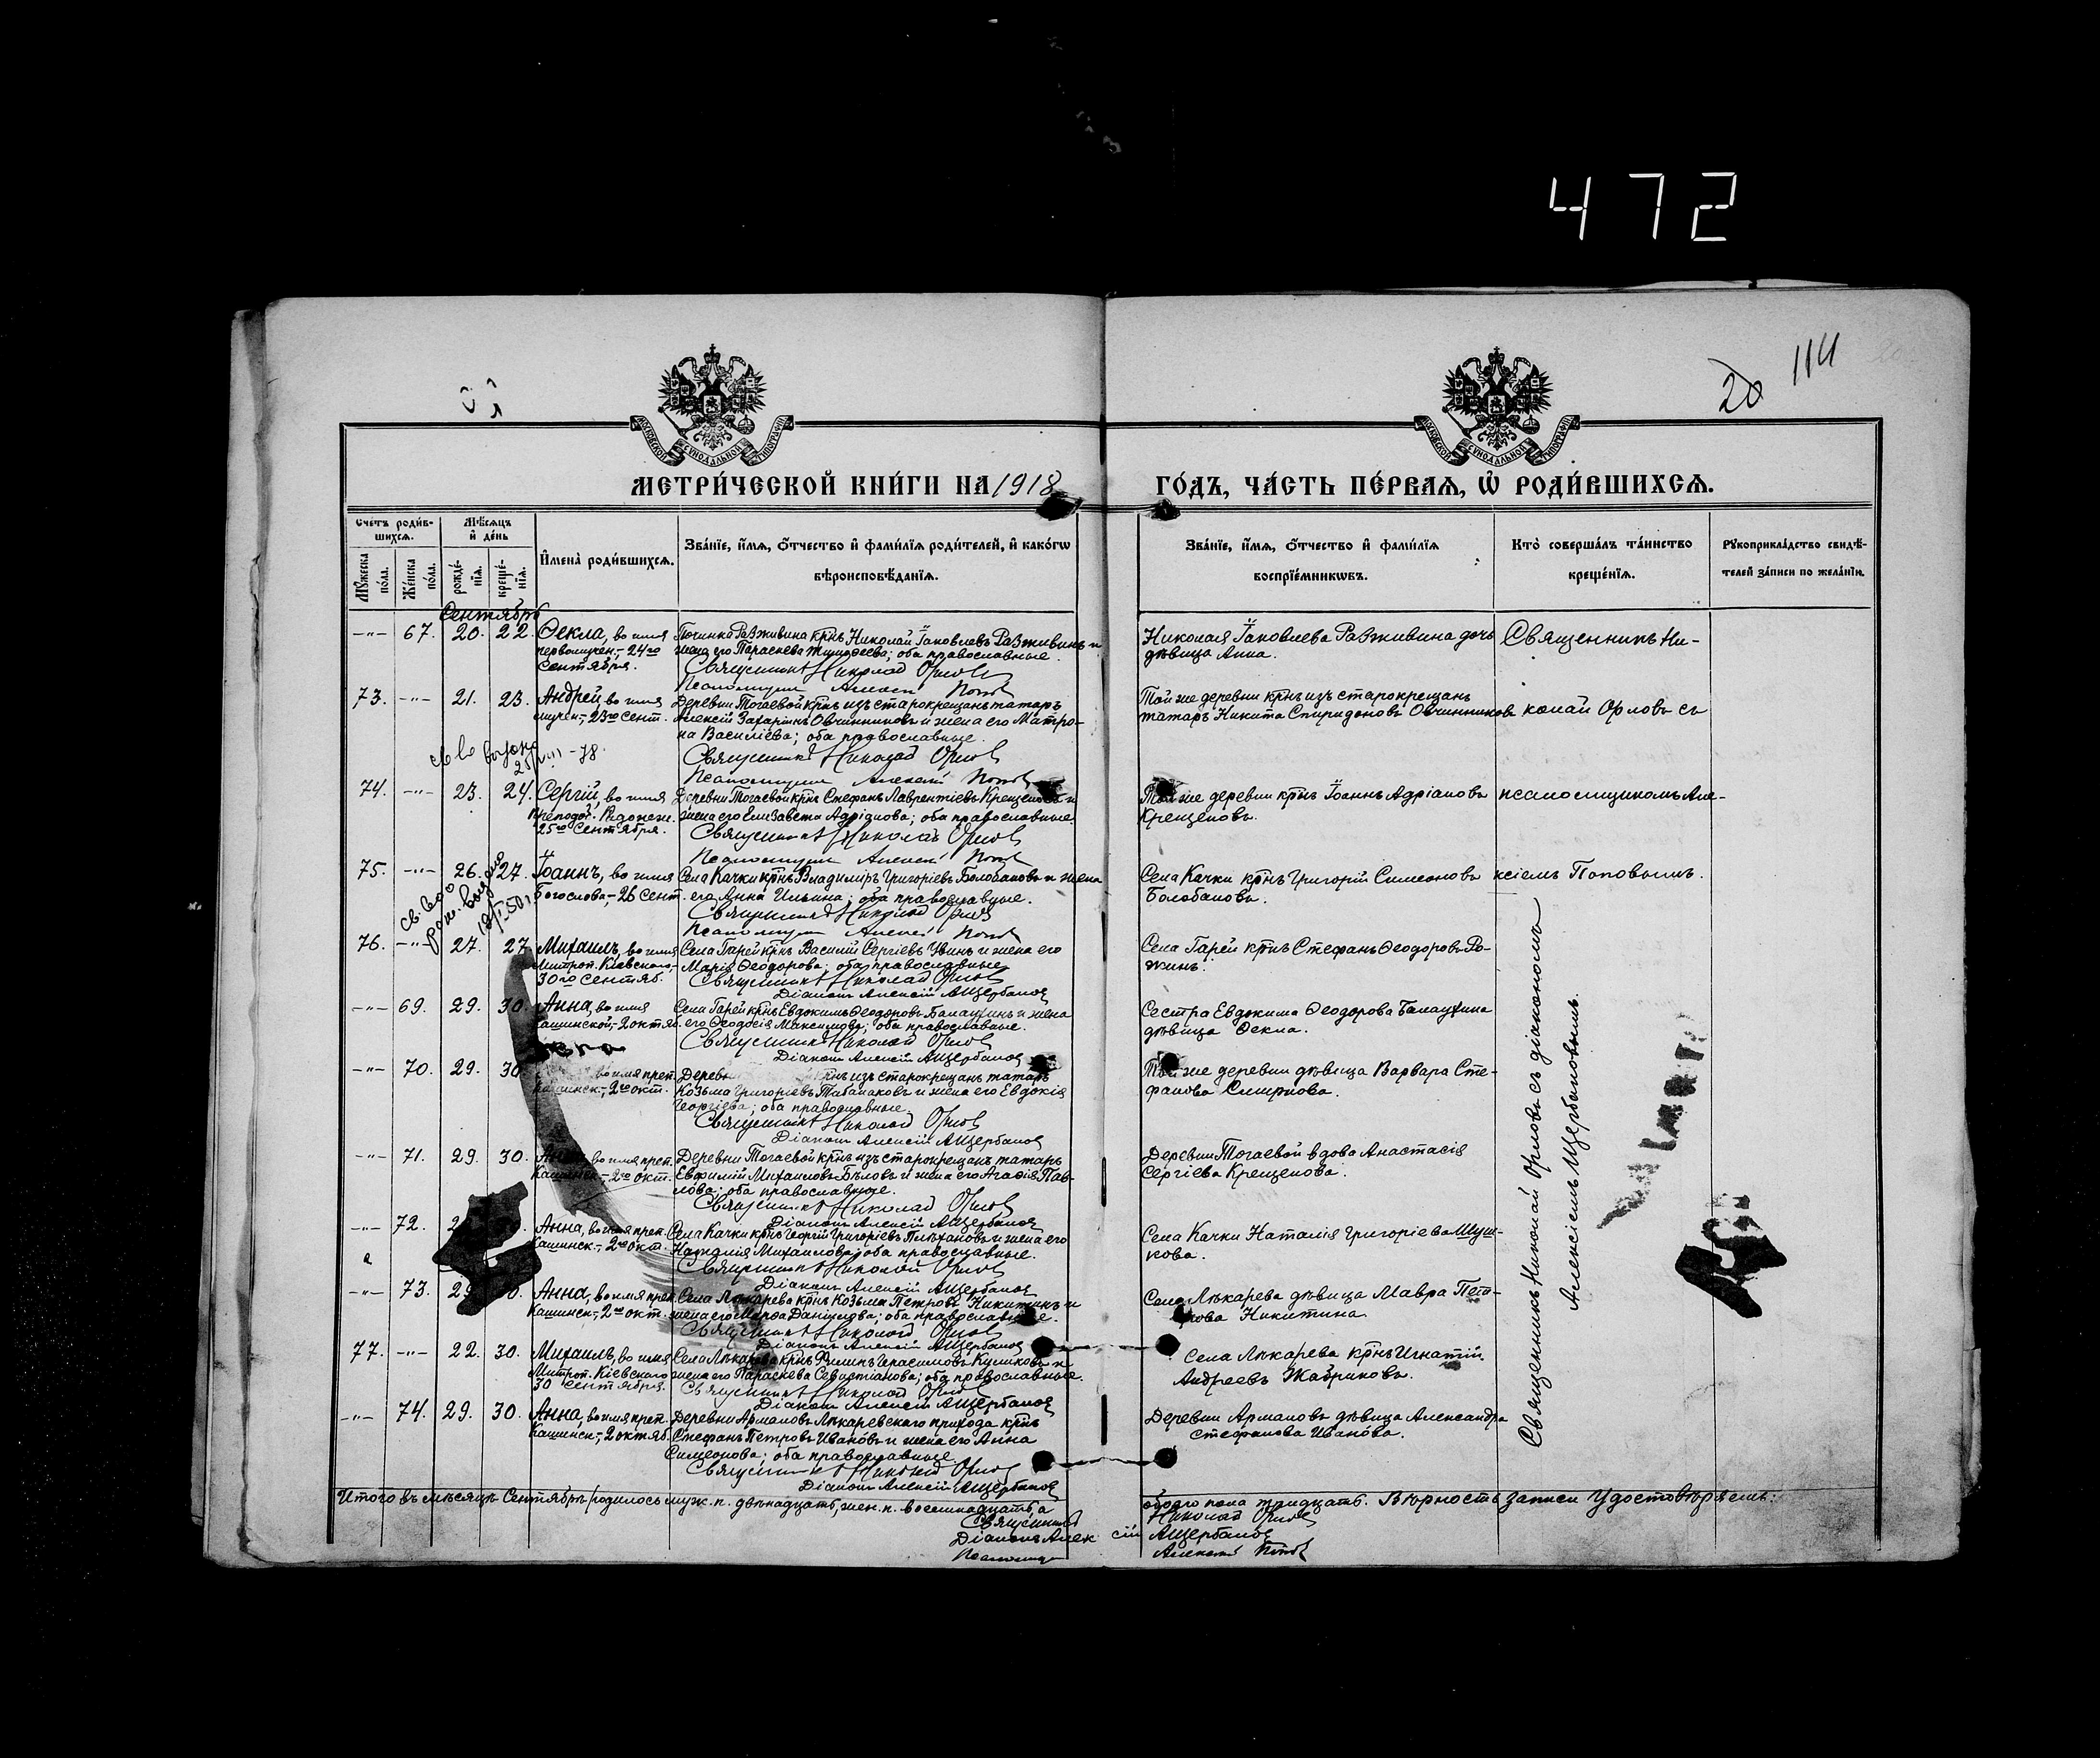 472
20
114
МОСКОВСКОЙ СѴНОДАЛЬНОЙ ТИПОГРАФІИ
МОСКОВСКОЙ СѴНОДАЛЬНОЙ ТИПОГРАФІИ
МЕТРИ́ЧЕСКОЙ КНИ́ГИ НА 1918
ГО́ДЪ, ЧА́СТЬ ПЕ́РВАЯ, Ѡ РОДИ́ВШИХСЯ.
Сче́тъ роди́в-
шихся.
Мѣ́сяцъ
и де́нь
Му́жеска
по́ла.
Же́нска
по́ла.
рожде́-
нїя.
креще́-
нїя.
Имена̀ роди́вшихся.
Зва́нїе, и́мя, о́тчество и фами́лїя роди́телей, и како́гѡ
вѣроисповѣ́данїя.
Зва́нїе, и́мя, о́тчество и фами́лїя
воспрїе́мникѡвъ.
Кто̀ соверша́лъ та́инство
креще́нїя.
Рꙋкоприкла́дство свидѣ́-
телей за́писи по жела́нїю.
Сентябрь
-"- 67. 20. 22. Ѳекла, во имя
первомучен.- 24го
Сентября.
Починка Разживина кр̃нъ Николай Іаковлевъ Разживинъ и
жена его Параскева Тимоѳеева; оба православные.
Священникъ Николай Орловъ
Псаломщикъ Алексѣй Поповъ
Николая Іаковлева Разживина дочь
дѣвица Анна.
Священникъ Ни-
73. -"- 21. 23. Андрей, во имя
мучен.- 23го Сент.
Деревни Тогаевой кр̃нъ изъ старокрещанъ татаръ
Алексій Захаринъ Овчинниковъ и жена его Матро-
на Васильева; оба православные.
Священникъ Николай Орловъ
Псаломщикъ Алексѣй Поповъ
Той же деревни кр̃нъ изъ старокрещанъ
татаръ Никита Спиридоновъ Овчинниковъ
колай Орловъ съ
74. -"- 23. 24. Сергій, во имя
Преподоб. Радонеж.
25го Сентября.
Деревни Тогаевой кр̃нъ Стефанъ Лаврентіевъ Крещеновъ и
жена его Елизавета Адріанова; оба православные.
Священникъ Николай Орловъ
Псаломщикъ Алексѣй Поповъ
Той же деревни кр̃нъ Іоаннъ Адріановъ
Крещеновъ.
псаломщикомъ Але-
75. -"- 26. 27. Іоаннъ, во имя
Богослова,- 26 Сент.
Села Качки кр̃нъ Владимиръ Григоріевъ Болобановъ и жена
его Анна Ильина; оба православные.
Священникъ Николай Орловъ
Псаломщикъ Алексѣй Поповъ
Села Качки кр̃нъ Григорій Симеоновъ
Болобановъ.
ксіемъ Поповымъ.
76. -"- 27. 27 Михаилъ, во имя
Митроп. Кіевского,-
30го Сентяб.
Села Гарей кр̃нъ Василій Сергіевъ Увинъ и жена его
Марія Ѳеодорова; оба православные.
Священникъ Николай Орловъ
Діаконъ Алексій Ащербаковъ
Села Гарей кр̃нъ Стефанъ Ѳеодоровъ Ро-
жинъ.
-"- 69. 29. 30. Анна, во имя
Кашинской,- 2 октяб.
Села Гарей кр̃нъ Евдокимъ Ѳеодоровъ Балашинъ и жена
его Ѳеодосія Максимова; оба православные.
Священникъ Николай Орловъ
Сестра Евдокима Ѳеодорова Балашина
дѣвица Ѳекла.
-"- 70. 29. 30 во имя преп.
Кашинск.,- 2го окт.
Деревн кр̃нъ изъ старокрещанъ татаръ
Козьма Григоріевъ Табанаковъ и жена его Евдокія
Георгіева; оба православные.
Священникъ Николай Орловъ
Той же деревни дѣвица Варвара Сте-
фанова Смирнова.
-"- 71. 29. 30. во имя преп.
Кашинск.- 2го окт.
Деревни Тогаевой кр̃нъ изъ старокрещанъ татаръ
Евфимій Михаиловъ Бѣловъ и жена его Агаѳія Пав-
лова; оба православные.
Священникъ Николай Орловъ
Деревни Тогаевой вдова Анастасія
Сергіева Крещенова.
-"- 72. Анна, во имя преп.
Кашинск.,- 2го окт.
Села Качки кр̃нъ Георгій Григоріевъ Плѣхановъ и жена его
Наталія Михаилова; оба православные.
Священникъ Николай Орловъ
Села Качки Наталія Григоріева Шуш-
кова.
-"- 73. 29 Анна, во имя преп.
Кашинск.,- 2го окт.
Села Лѣкарева кр̃нъ Козьма Петровъ Никитинъ и
жена его Марѳа Даніилова; оба православные.
Священникъ Николай Орловъ
Села Лѣкарева дѣвица Мавра Пет-
рова Никитина.
77. -"- 22. 30. Михаилъ, во имя
Митроп. Кіевского
30 Сентября.
Села Лѣкарева кр̃нъ Филипъ Герасимовъ Куликовъ и
жена его Параскева Севастіанова; оба православные.
Священникъ Николай Орловъ
Села Лѣкарева кр̃нъ Игнатій
Андреевъ Жабриковъ.
-"- 74. 29. 30. Анна, во имя преп.
Кашинск.,- 2 октяб.
Деревни Армаловъ Лѣкаревского прихода кр̃нъ
Стефанъ Петровъ Ивановъ и жена его Анна
Симеонова; оба православные.
Священникъ Николай Орловъ
Деревни Армаловъ дѣвица Александра
Стефанова Иванова.
Священникъ Николай Орловъ съ діакономъ
Алексіемъ Щербаковымъ.
Итого въ мѣсяцѣ Сентябрѣ родилось муж. п. двѣнадцать, жен. п. восемнадцать, а
обоего пола тридцать. Вѣрность записи удостовѣряемъ:
Священникъ Николай Орловъ
Діаконъ Алексій Ащербаковъ
Псаломщикъ Алексѣй Поповъ